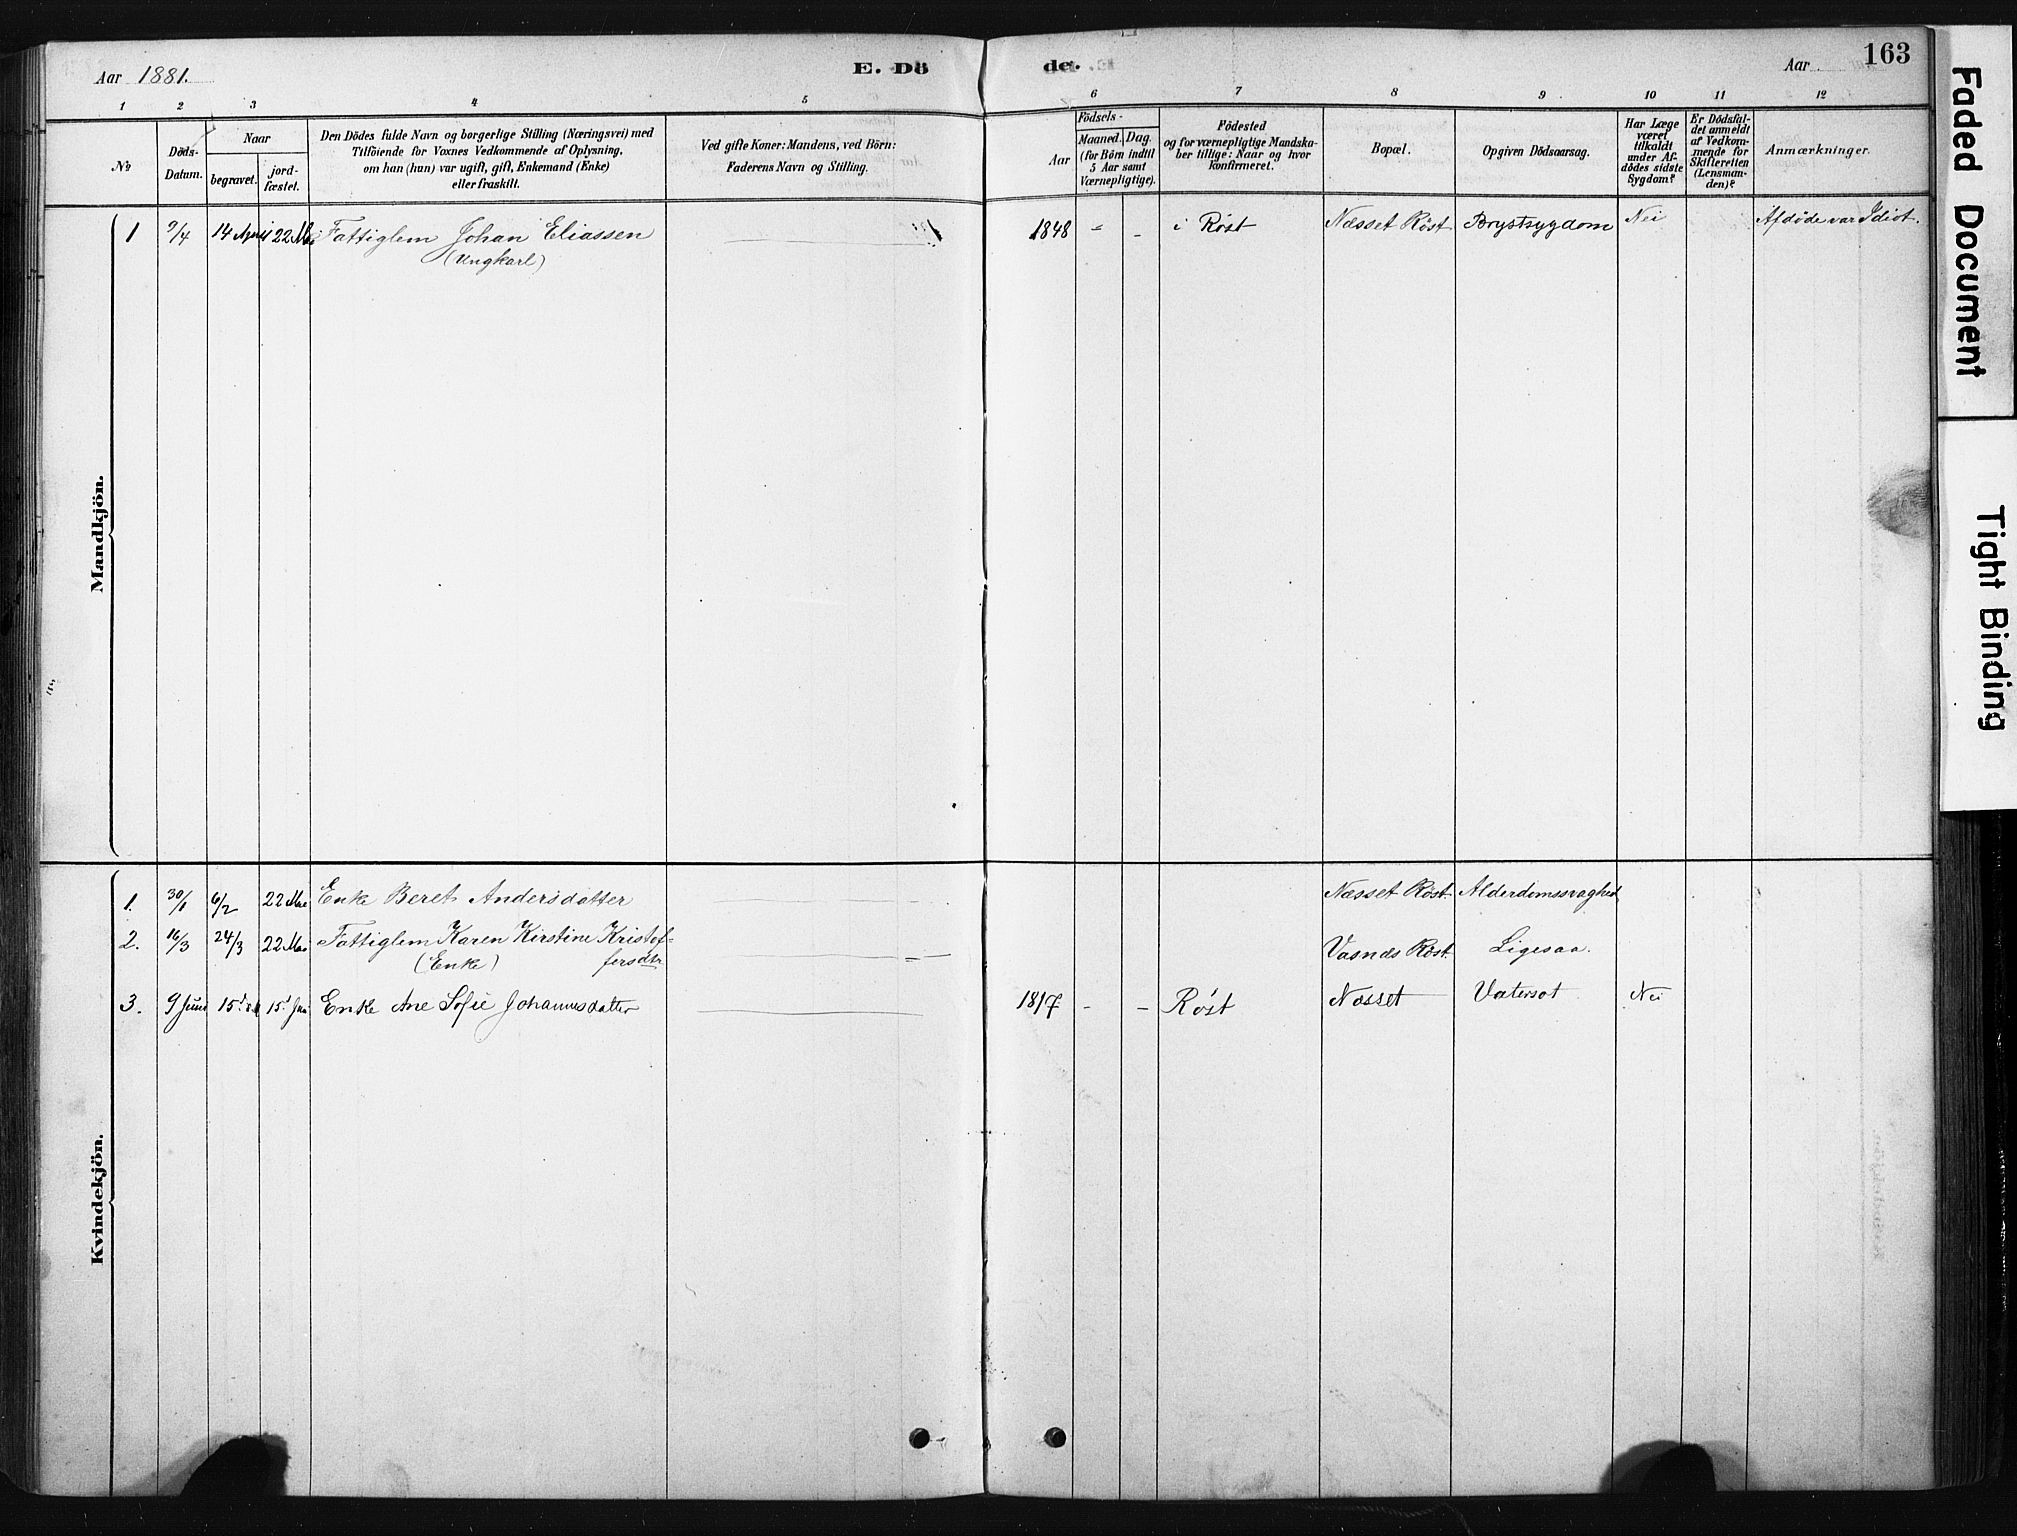 Aar 1881.
E. Dö
de.
Aar
163
1 2 3 4 5 6 7 8 9 10 11 12
No
Döds-Datum.
Naar
begravet.
jord-fæstet.
Den Dödes fulde Navn og borgerlige Stilling (Næringsvei) med
Tilföiende for Voxnes Vedkommende af Oplysning,
om han (hun) var ugift, gift, Enkemand (Enke)
eller fraskilt.
Ved gifte Koner: Mandens, ved Börn:
Faderens Navn og Stilling.
Födsels-
Aar
Maaned. Dag.
(for Börn indtil
5 Aar samt
Værnepligtige).
Födested
og for værnepligtige Mandska-
ber tillige: Naar og hvor
konfirmeret.
Bopæl.
Opgiven Dödsaarsag.
Har Læge
været
tilkaldt
under Af-
dödes sidste
Sygdom?
Er Dödsfal-
det anmeldt
af Vedkom-
mende for
Skifteretten
(Lensman-
den)?
Anmærkninger.
Mandkjön.
1 9/4 14 April 22 Mai Fattiglem Johan Eliassen 1848 " - i Røst Næsset Røst Brystsygdom Nei Afdøde var Idiot.
(Ungkarl)
Kvindekjön.
1. 30/1 6/2 22 Mai Enke Beret Andersdatter Næsset Røst. Alderdomssvaghed
2. 16/3 24/3 22 Mai Fattiglem Karen Kirstine Kristof- Røst. Ligesaa.
(Enke) fersdtr
3. 9 Juni 15d 15d Enke Ane Sofie Johannesdatter 1817 - - Røst Næsset Vatersot Nei
Faded Document
Tight Binding